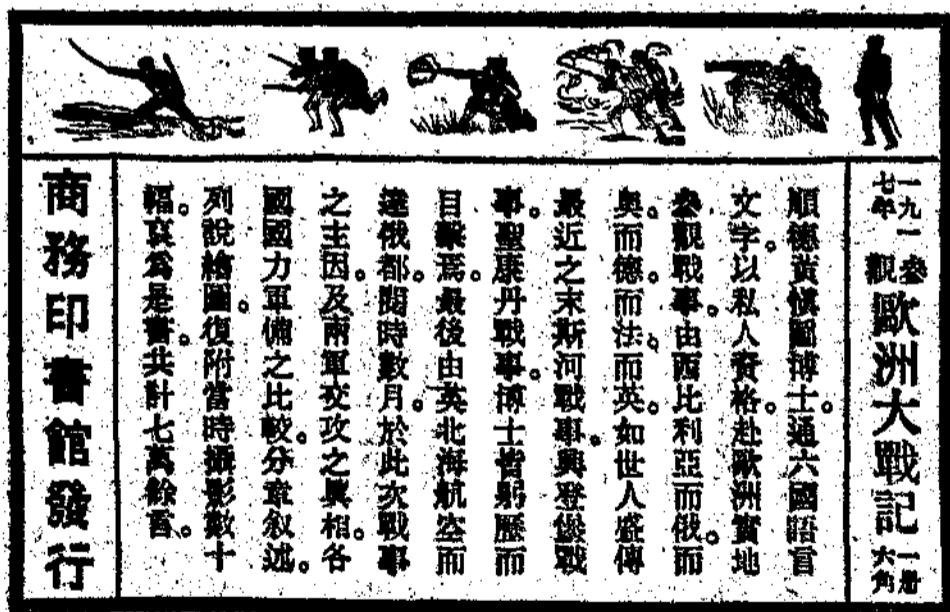 一九一七年 參觀 歐洲大戰記 一册六角
順德黃愼圖博士。通六國語言
文字。以私人資格。赴歐洲實地
參觀戰事。由西比利亞而俄。而
奥。而德。而法。而英。如世人盛傳
最近之末斯河戰事。興登堡戰
事。聖康丹戰事。博士皆躬歷而
目擊焉。最後由英北海航空而
達俄都。閱時數月。於此次戰事
之主因。及兩軍交攻之眞相。各
國國力軍備之比較。分章叙述。
列說繪圖。復附當時攝影數十
幅。裒爲是書。共計七萬餘言。
商務印書館發行